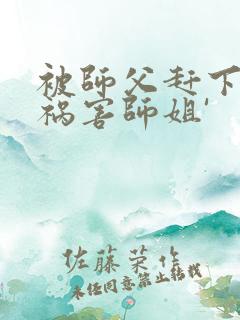 被師父赶下
祸害師姐'
佐藤荣作
未经同意禁止转载